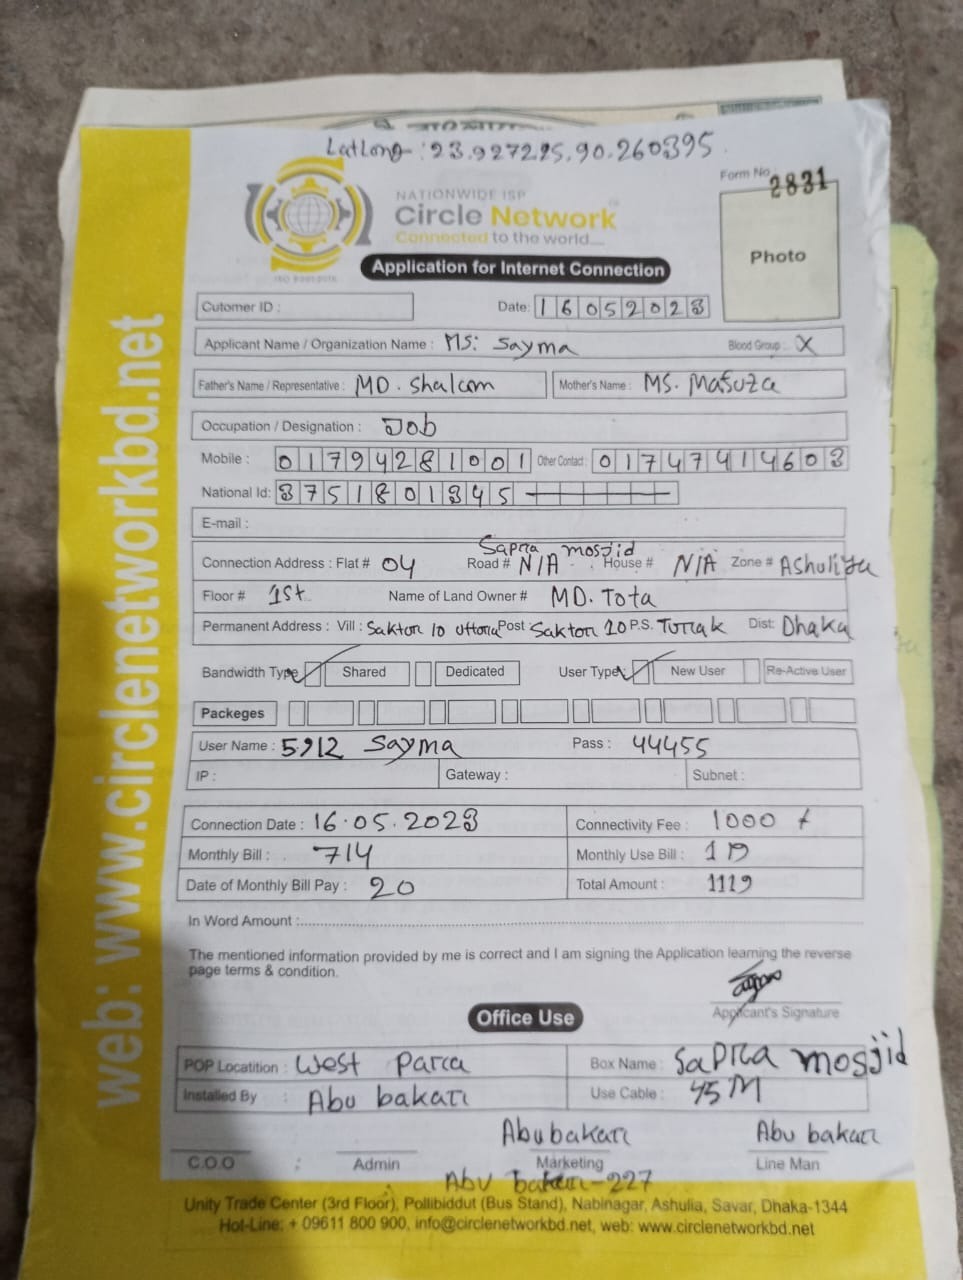 LatLong- : 23.927225.90.260395
Form No. 2831
NATIONWIDE ISP
Circle Network
Connected to the world....
Photo
Application for Internet Connection
Cutomer ID :
Date: 16052023
Applicant Name / Organization Name : MS: Sayma Blood Group : X
Father's Name / Representative : MD. Shalam Mother's Name : MS. Mafuza
Occupation / Designation : Job
Mobile : 01794281001 Other Contact : 01747414603
National Id: 3751801345
E-mail :
Sapra mosjid
Connection Address : Flat # 04 Road # N/A House # N/A Zone # Ashuliya
Floor # 1st Name of Land Owner # MD. Tota
Permanent Address : Vill : Saktor 10 Uttora Post : Saktor 10 P.S. Turak Dist: Dhaka
Bandwidth Type Shared Dedicated User Type: New User Re-Active User
Packeges
User Name : 5912 Sayma Pass : 44455
IP : Gateway : Subnet :
Connection Date : 16.05.2023 Connectivity Fee : 1000
Monthly Bill : 714 Monthly Use Bill :
Date of Monthly Bill Pay : 20 Total Amount : 1119
In Word Amount :
The mentioned information provided by me is correct and I am signing the Application learning the reverse
page terms & condition.
Applicant's Signature
Office Use
POP Locatition : West Para Box Name : Sapra mosjid
Installed By : Abu bakar Use Cable : 45M
Abu bakar Abu bakar
C.O.O : Admin Marketing Line Man
Abu bakar-227
Unity Trade Center (3rd Floor), Pollibiddut (Bus Stand), Nabinagar, Ashulia, Savar, Dhaka-1344
Hot-Line: + 09611 800 900, info@circlenetworkbd.net, web: www.circlenetworkbd.net
web: www.circlenetworkbd.net